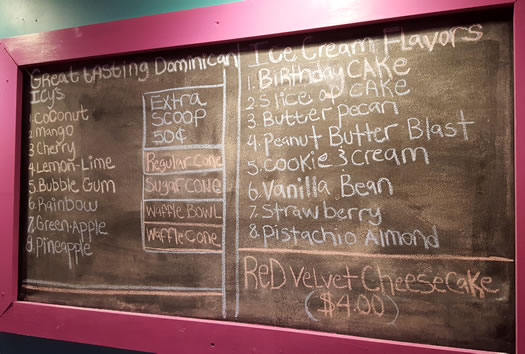 Great tasting Dominican
Icys
1. Coconut
2. mango
3. Cherry
4. Lemon-Lime
5. Bubble Gum
6. Rainbow
7. Green-Apple
8. Pineapple
Extra
Scoop
50¢
Regular Cone
Sugar Cone
Waffle Bowl
Waffle Cone
Ice Cream Flavors
1. Birthday CAKE
2. Slice of CAKE
3. Butter pecan
4. Peanut Butter Blast
5. Cookie & Cream
6. Vanilla Bean
7. Strawberry
8. Pistachio Almond
Red Velvet Cheesecake
($4.00)